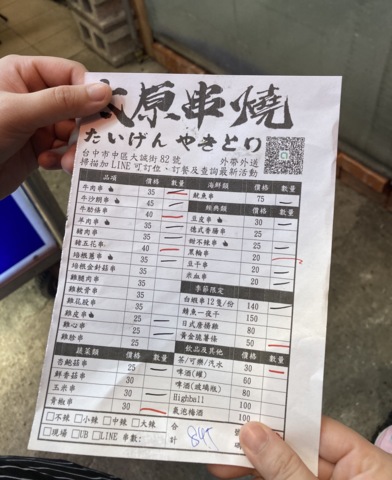 太原串燒
たいげん やきとり
台中市中區大誠街82號 外帶外送
掃描加 LINE 可訂位、訂餐及查詢最新活動
品項 價格 數量
牛肉串 35
牛沙朗串 45
牛粉條串 40
羊肉串 35
豬肉串 35
豬五花串 40
培根蔥串 35
培根金針菇串 35
雞腿肉串 35
雞軟骨串 35
雞花腱串 35
雞皮串 35
雞心串 35
雞胗串 35
蔬菜類 價格 數量
杏鮑菇串 25
鮮香菇串 30
玉米串 30
青椒串 30
□不辣 □小辣 □中辣 □大辣
□現場 □UB □LINE 串數:
海鮮類 數量
魷魚串 75
經典類 數量
豆皮串 30
德式香腸串 25
甜不辣串 25
黑輪串 20
豆干串 20
米血串 20
季節限定
白蝦串12隻/份 140
鯖魚一夜干 150
日式唐揚雞 80
黃金脆薯條 50
飲品及其他
茶/可樂/汽水 30
啤酒(罐) 60
啤酒(玻璃瓶) 80
Highball 100
氣泡梅酒 100
合計 845